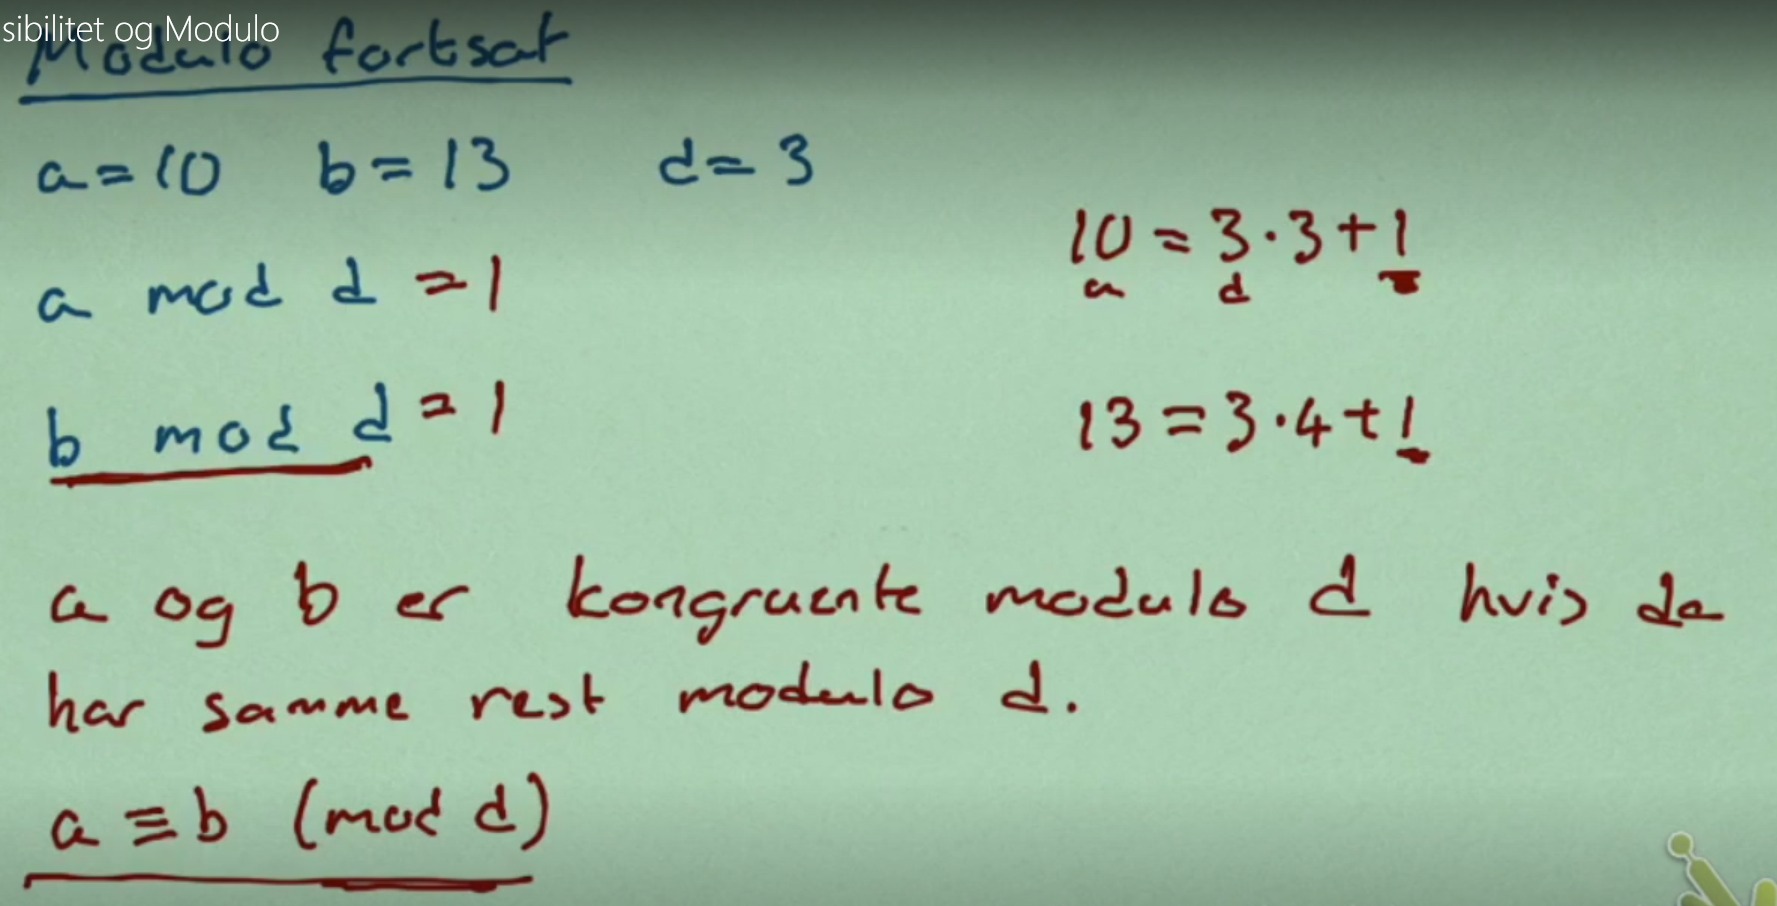 sibilitet og Modulo
Modulo fortsat
a = 10 b = 13 d = 3
10 = 3 · 3 + 1
a d
a mod d = 1
b mod d = 1
13 = 3 · 4 + 1
a og b er kongruente modulo d hvis de
har samme rest modulo d.
a ≡ b (mod d)